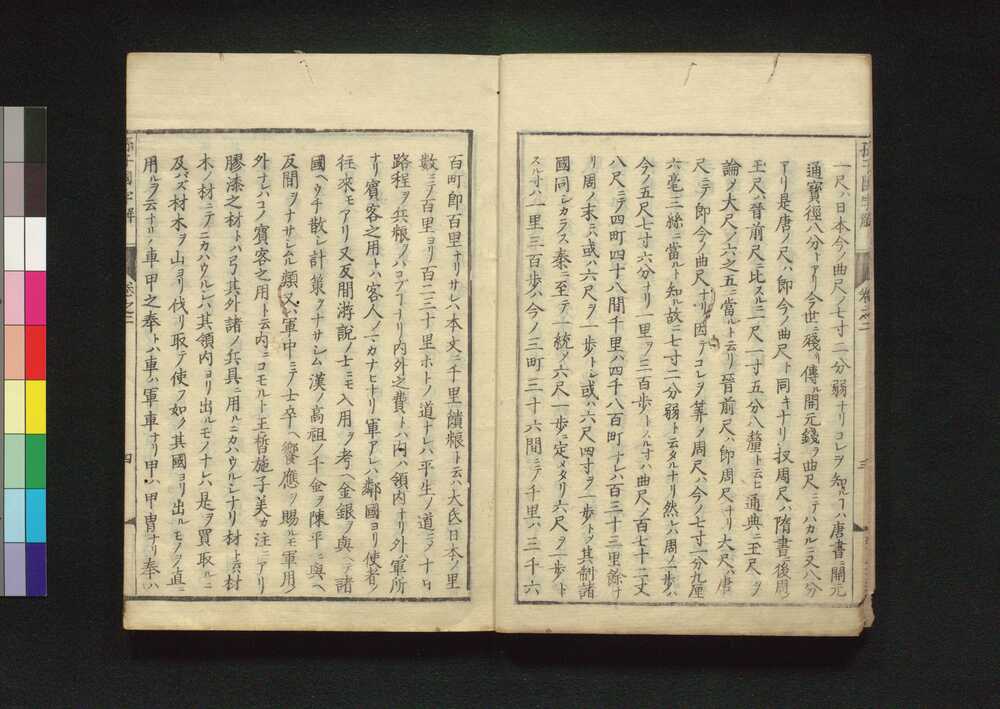 一尺ハ日本今ノ曲尺ノ七寸二分弱ナリコレヲ知ルハ唐書ニ開元
通寳徑八分トアリ今世ニ殘リ傳ル開元錢ヲ曲尺ニテハカルニ又八分
アリ是唐ノ尺ハ即今ノ曲尺ト同キナリ扨周尺ハ隋書ニ後周ノ
王尺ハ晉前尺ニ比スルニ一尺一寸五分八釐ト云ヒ通典ニ玉尺ヲ
論メ大尺ノ六之五ニ當ルト云リ晉前尺ハ即周尺ナリ大尺ハ唐
尺ニテ即今ノ曲尺ナリ因テコレヲ筭メ周尺ハ今ノ七寸一分九厘
六毫三絲ニ當ルト知ル故ニ七寸二分弱ト云タルナリ然レハ周ノ一歩ハ
今ノ五尺七寸六分ナリ一里ヲ三百歩トスル寸ハ曲尺ノ百七十二丈
八尺ニテ四町四十八間千里ハ四千八百町ナレハ百三十三里餘ナ
リ周ノ末ニハ或ハ六尺ヲ一歩トシ或ハ六尺四寸ヲ一歩トメ其制諸
國同シカラス秦ニ至テ一統メ六尺一歩ニ定メタリ六尺ヲ一歩ト
スル寸ハ一里三百歩ハ今ノ三町三十六間ニテ千里ハ三千六
孫子國字解 卷之二
三
百町即百里ナリサレハ本文ニ千里饋粮ト云ハ大氐日本ノ里
數ニテ百里ヨリ百二三十里ホトノ道ナレハ平生ノ道ニメ十日
路程ヲ兵粮ヲハコブナリ内外之費トハ内ハ領内ナリ外ハ軍所
ナリ賓客之用トハ客人ノマカナヒナリ軍アレハ鄰國ヨリ使者ノ
往來モアリ又反間游説ノ士ニモ入用ヲ考ヘ金銀ノ與ヘテ諸
國ヘウチ散シ計策ヲナサシム漢ノ高祖ノ千金ヲ陳平ニ與ヘ
反間ヲナサシムル類又ハ軍中ニテノ士卒ヘ饗應ヲ賜ルモ軍用ノ
外ナレハコノ賓客之用ト云内ニコモルト王晳施子美カ注ニアリ
膠漆之材トハ弓其外諸ノ兵具ニ用ルニカハウルシナリ材トハ材
木ノ材ニテニカハウルシハ其領内ヨリ出ルモノナレハ是ヲ買取ルニ
及ハズ材木ヲ山ヨリ伐リ取テ使フ如ク其國ヨリ出ルモノヲ直ニ
用ルヲ云ナリ車甲之奉トハ車ハ軍車ナリ甲ハ甲冑ナリ奉ハ
孫子國字解 卷之二
四